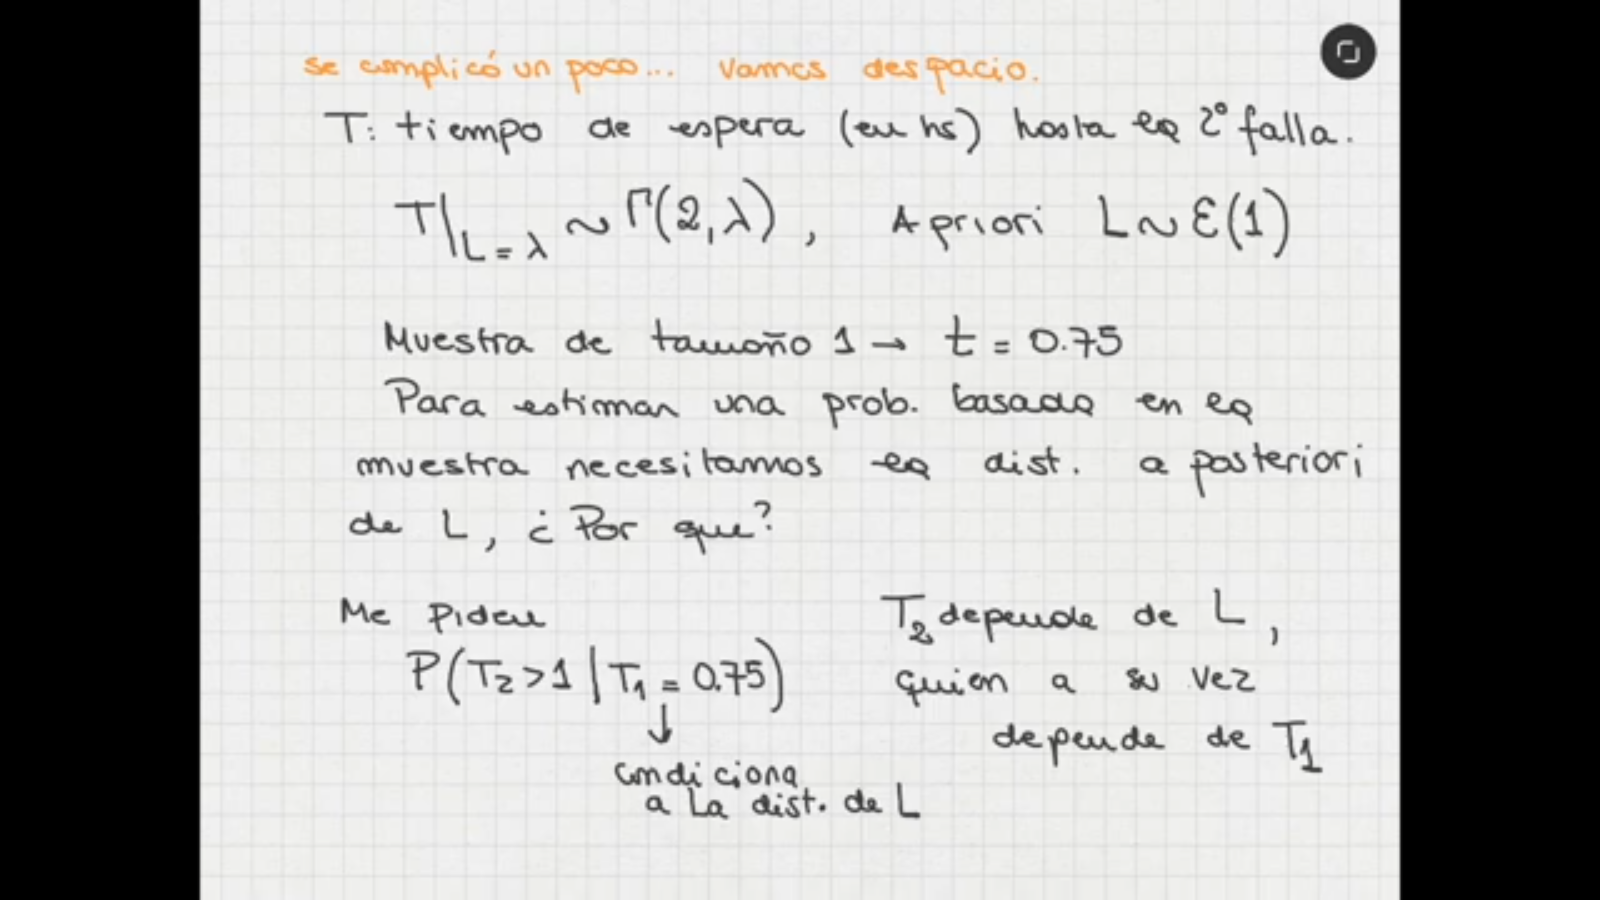 se complicó un poco... vamos despacio.
T: tiempo de espera (en hs) hasta la 2º falla.
T|L=λ ~ Γ(2,λ), A priori L~ε(1)
Muestra de tamaño 1 → t = 0.75
Para estimar una prob. basada en la
muestra necesitamos la dist. a posteriori
de L, ¿Por que?
Me piden
P(T₂>1 | T₁ = 0.75)
↓
condiciona
a la dist. de L
T₂ depende de L,
quien a su vez
depende de T₁